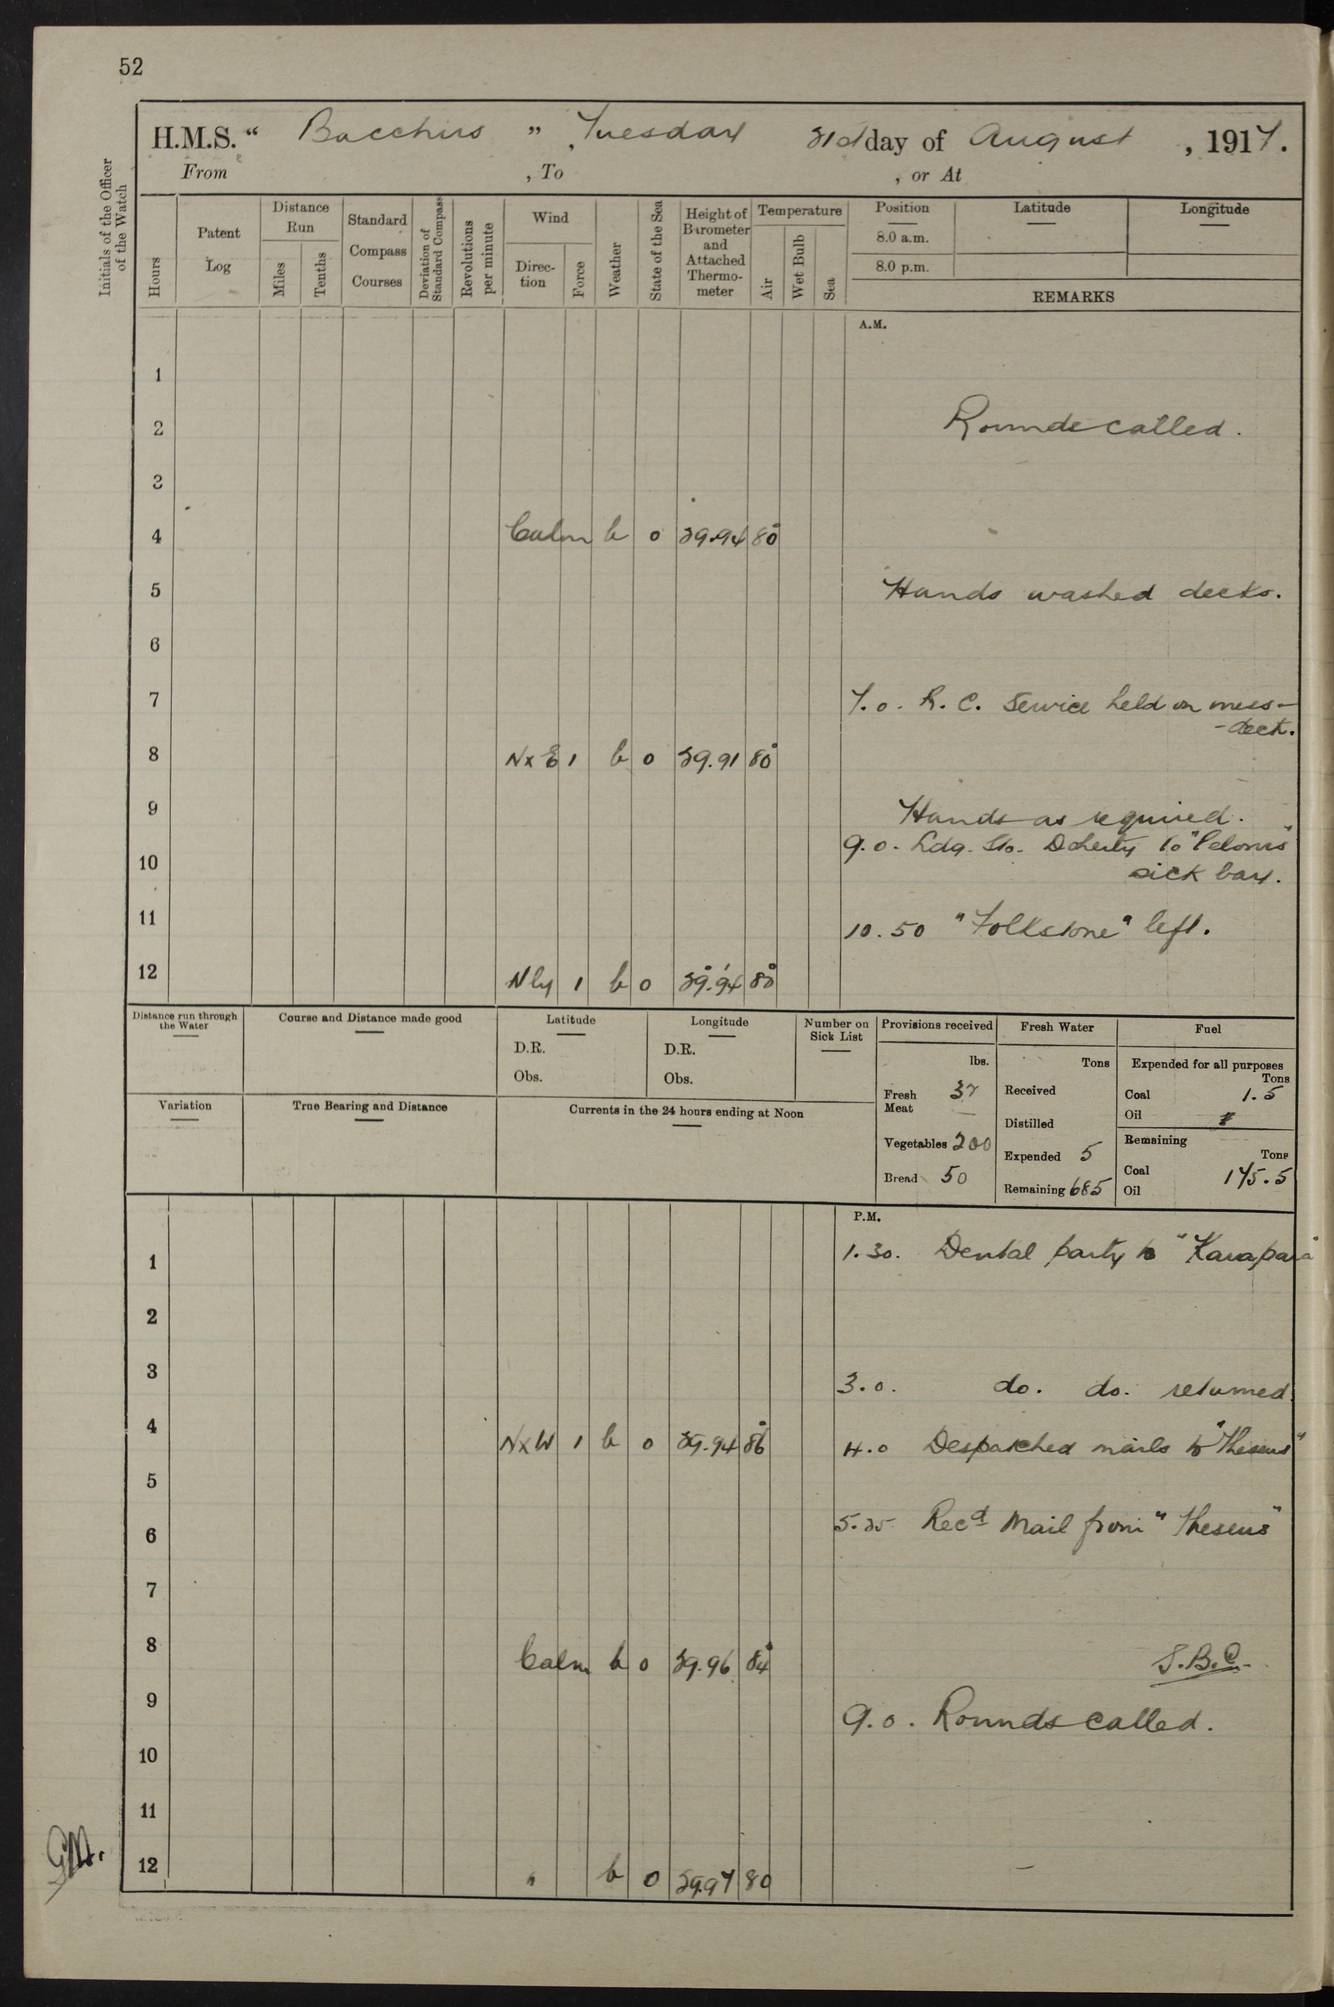 52
H.M.S. “ Bacchus ” , Tuesday 21st day of August , 1917.
From , To , or At
Initials of the Officer of the Watch
Hours
Patent Log
Distance Run
Miles
Tenths
Standard Compass Courses
Deviation of Standard Compass
Revolutions per minute
Wind
Direction
Force
Weather
State of the Sea
Height of Barometer and Attached Thermometer
Temperature
Air
Wet Bulb
Sea
Position Latitude Longitude
8.0 a.m.
8.0 p.m.
REMARKS
A.M.
1
2 Rounds called.
3
4 Calm b 0 29.94 80°
5 Hands washed decks.
6
7 7.0. R. C. Service held on mess-
-deck.
8 NxE 1 b 0 29.91 80°
9 Hands as required.
9.0. Ldg. Sto. Doherty to "Pelorus"
10 sick bay.
11 10.50 "Folkstone" left.
12 Nly 1 b 0 29.94 80°
Distance run through the Water
Course and Distance made good
Latitude
D.R.
Obs.
Longitude
D.R.
Obs.
Number on Sick List
Provisions received
lbs.
Fresh Meat 37
Vegetables 200
Bread 50
Fresh Water
Tons
Received
Distilled
Expended 5
Remaining 685
Fuel
Expended for all purposes
Tons
Coal 1.5
Oil
Remaining
Tons
Coal 175.5
Oil
Variation
True Bearing and Distance
Currents in the 24 hours ending at Noon
P.M.
1 1.30. Dental party to "Karapara"
2
3 3.0. do. do. returned.
4 NxW 1 b 0 29.94 86° 4.0 Despatched mails to "Theseus"
5
6 5.25 Recd Mail from "Theseus"
7
8 Calm b 0 29.96 84° S.B.C.
9 9.0. Rounds called.
10
11
12 " b 0 29.97 80